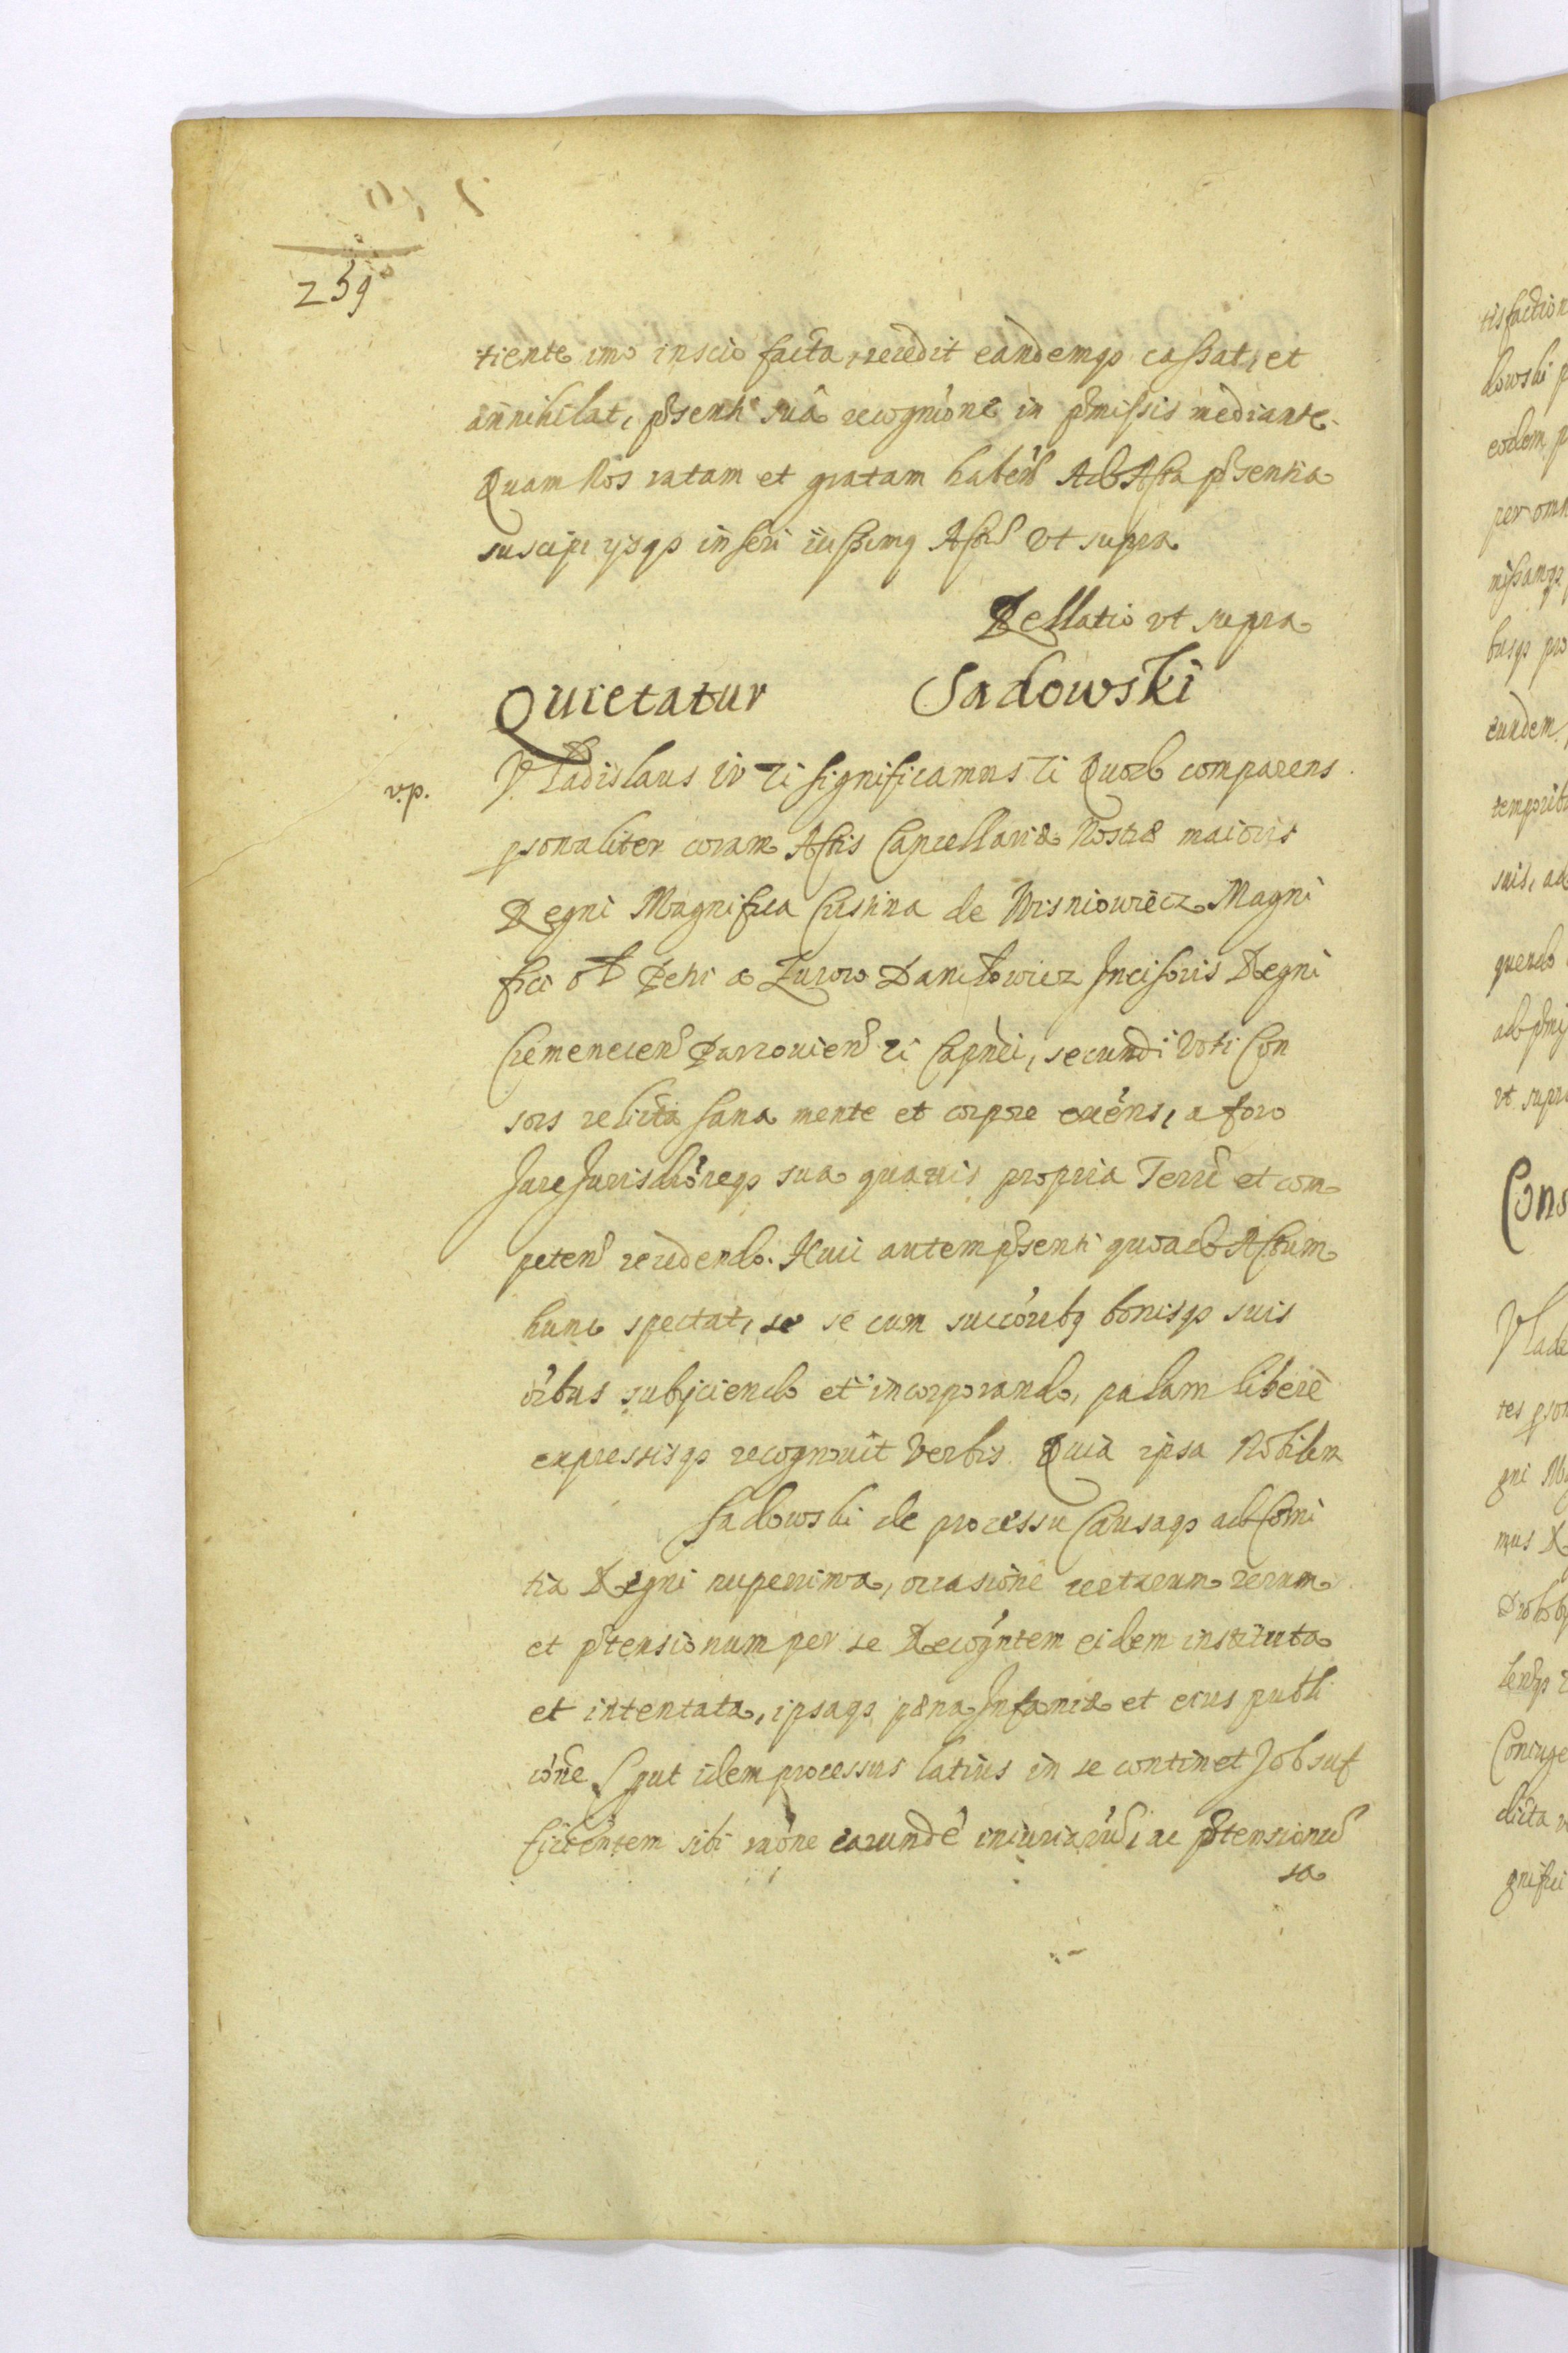 259
tiente imo inscio facta, recedit eandemqȝ cassat, et
annihilat, pñsenti suâ recognióne in pmissis mediante.
Quam Nos ratam et gratam habeñ Ad Acta pñsentia
suscipi ysqȝ inseri iussimq Actũ vt supra
Rellatio vt supra
Quietatur Sadowski
v.p.
Vladislaus IV ꝛc significamus ꝛc Quod comparens
psonaliter coram Actis Cancellariæ Nostræ maioris
Regni Magnifica Cristina de Wisniowiecz Magni
fici ol Petri a Zurow Daniłowicz Incisoris Regni
Cremeneceñ Parczouieñ ꝛc Capnei, secundi Voti Con
sors relicta sana mente et corpore exéns, a foro
Jure Jurisdióneqȝ sua quauis propria Terri et com
peteñ recedendo. Huic autem pñsenti quoad Actum
hunc spectat, se cum succóribq bonisqȝ suis
óibus subijciendo et incorporando, palam liberè
expressisqȝ recognouit Verbis. Quia ipsa Nobilem
Sadowski de processu Causaqȝ ad Comi
tia Regni nuperrima, occasione certarum rerum
et ptensionum per se Recogntem eidem instituta
et intentata, ipsaqȝ pæna Infamiæ et eius publi
cóne (put idem processus latius in se continet) ob suf
ficientem sibi raóne earundé iniuriarũ, ac ptensionũ
sa
tisfaction
kowski p
eodem p
per omn
missamqȝ
busqȝ pro
eundem
temporibu
suis, ad
quendo
ad pmi
vt supra
Cons
Vladi
tes pson
gni Ma
mus D
Drohoby
Coniuge
dicta
gnifici